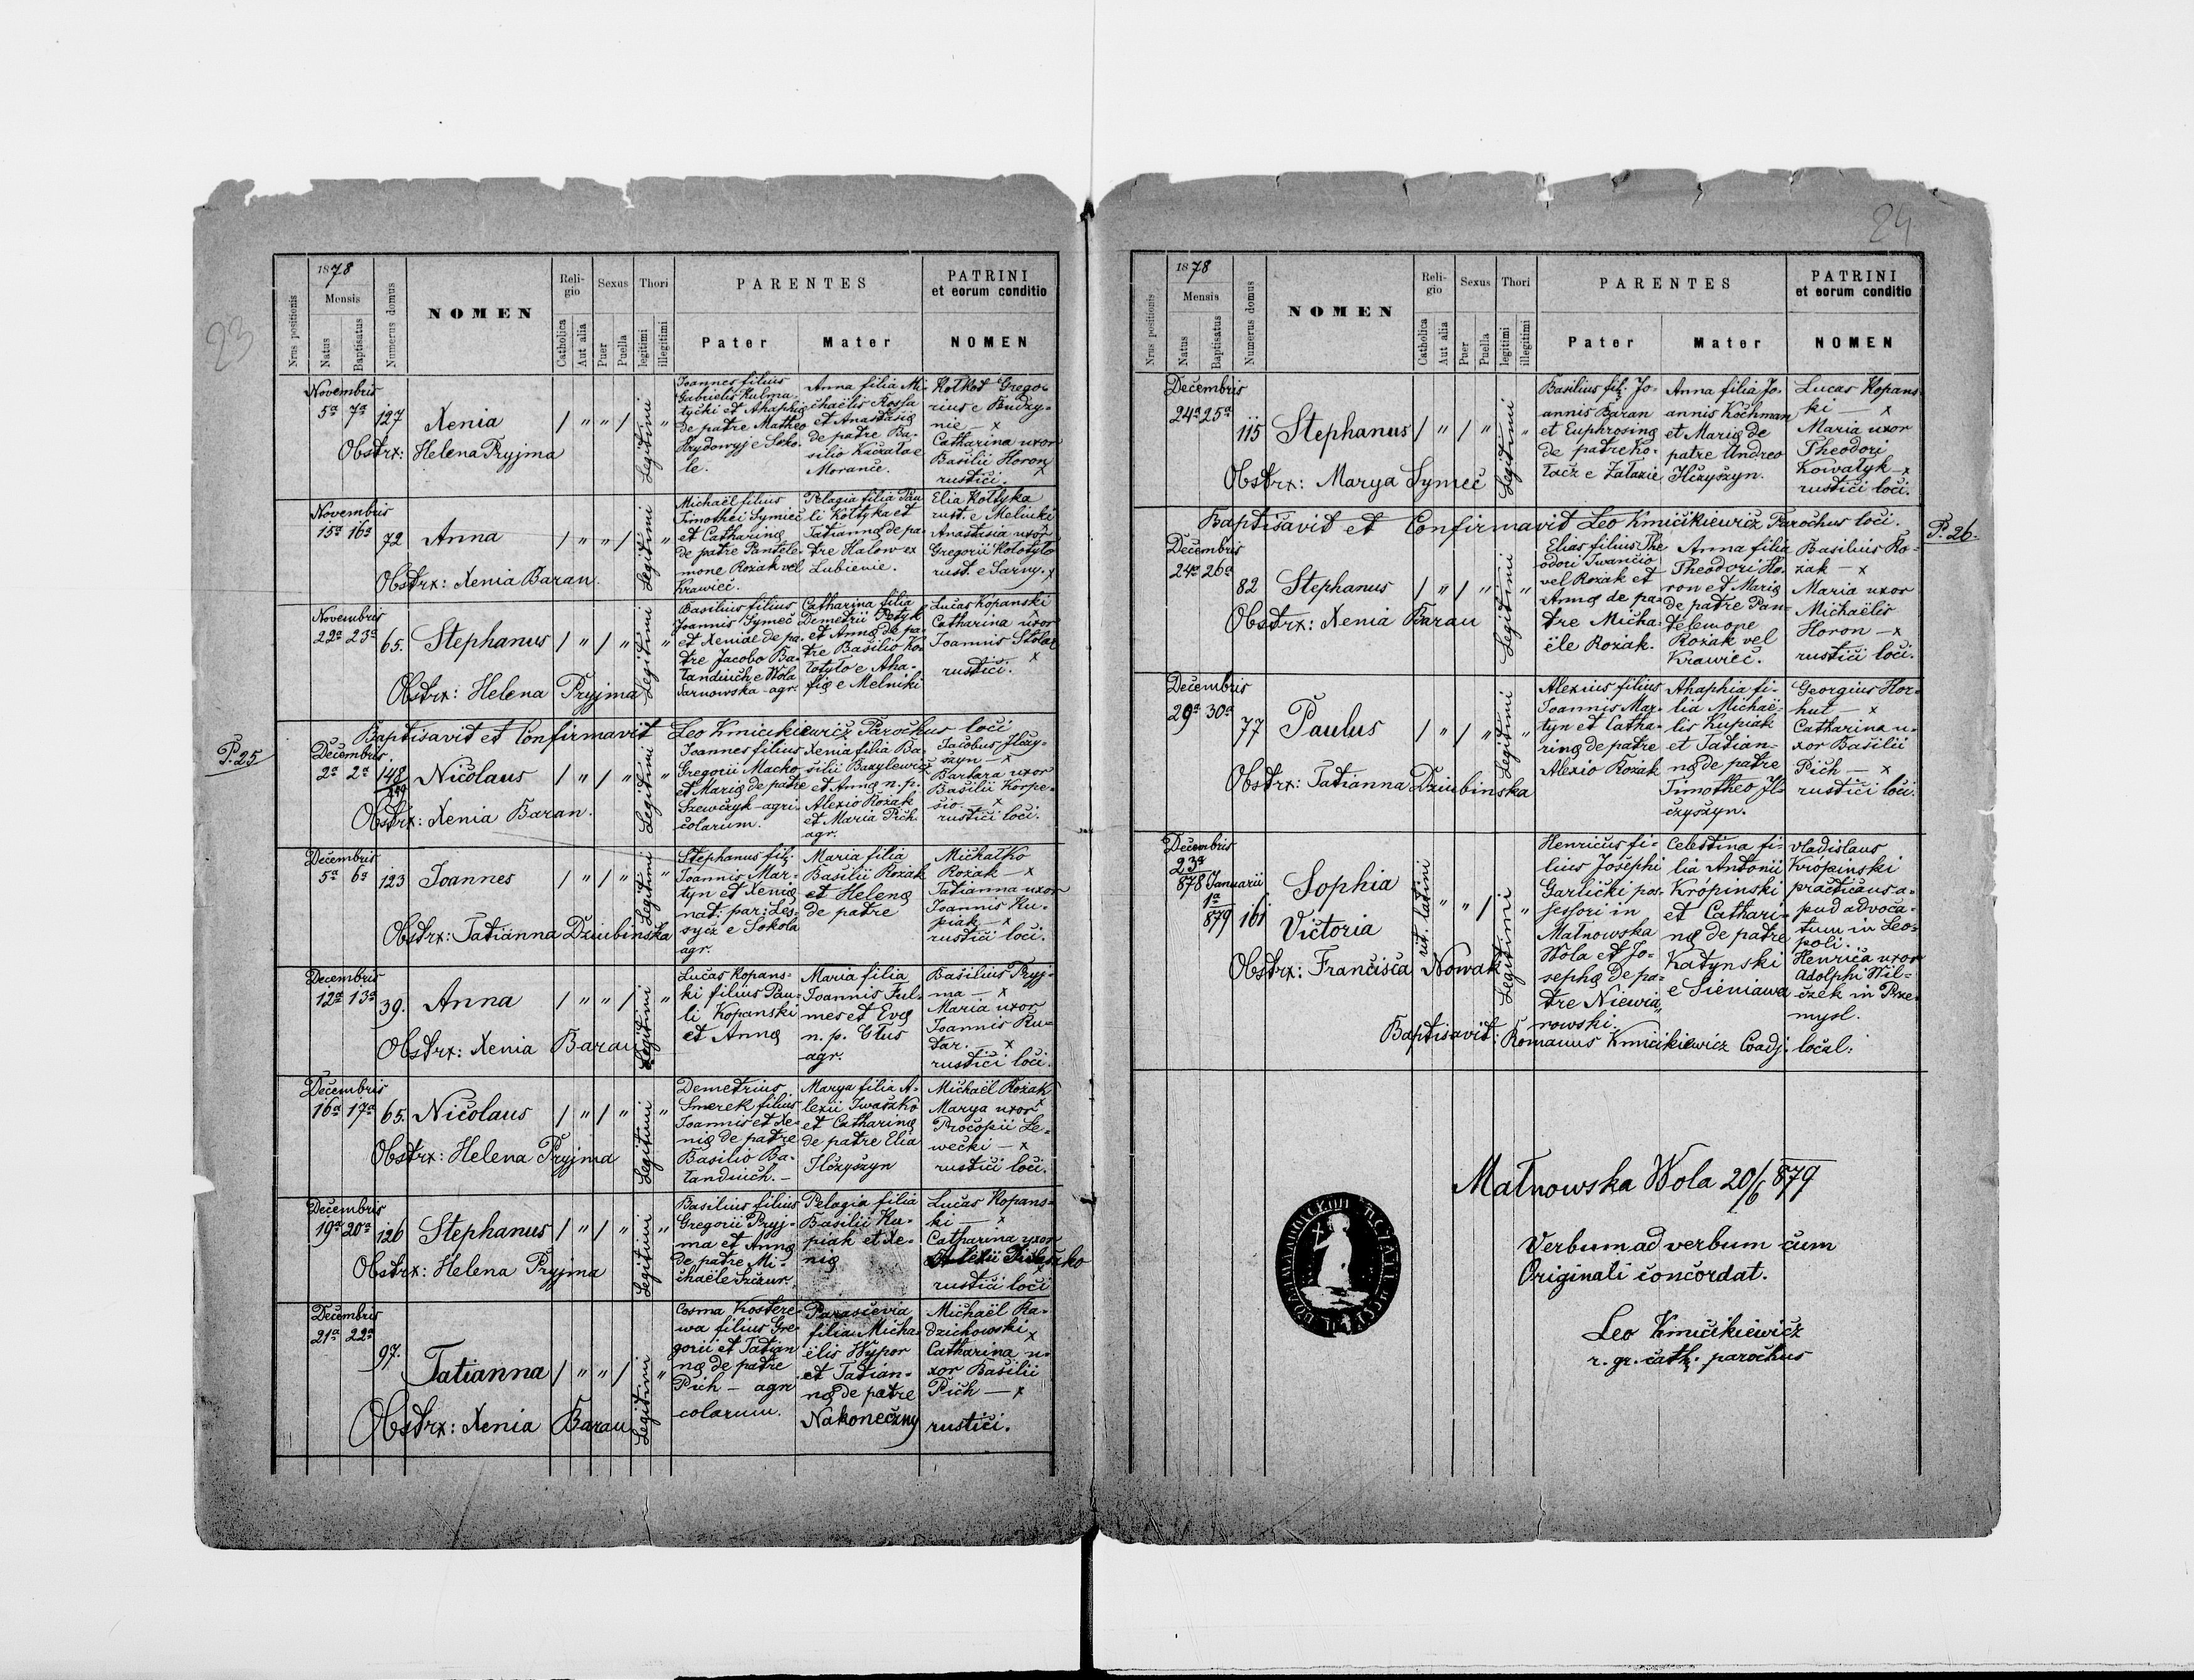 23
1878
Mensis
Nrus positionis
Natus
Baptisatus
Numerus domus
NOMEN
Reli-
gio
Catholica
Aut alia
Sexus
Puer
Puella
Thori
legitimi
illegitimi
PARENTES
Pater
Mater
PATRINI
et eorum conditio
NOMEN
Novembris
5ª 7ª 127 Xenia / " " / Legitimi "
Obstrx: Helena Pryjma
Joannes filius
Gabrielis Kulma-
tycki et Ahaphię
de patre Matheo
Hrydowyj e Soko-
le.
Anna filia Mi-
chaëlis Rossa
et Anastasię
de patre Ba-
silio
Morańce.
Kotkod Grego-
rius e Budzy-
nie — x
Catharina uxor
Basilii Horon x
rustici.
Novembris
15ª 16ª 72 Anna / " " / Legitimi "
Obstrx: Xenia Baran.
Michaël filius
Timothei Symieč
et Catharinę
de patre Pantele-
mone Rożak vel
Krawieč.
Pelagia filia Pau-
li Kołtyka et
Tatiannę de pa-
tre Halow ex
Lubienie.
Elia Kołtyka
rust. e Melniki
Anastasia uxor x
Gregorii Kołotyło
rust. e Sarny. x
Novembris
22ª 23ª 65. Stephanus / " / " Legitimi "
Obstrx: Helena Pryjma
Basilius filius
Joannis Symeč
et Xeniae de pa-
tre Jacobo Ba-
łanduch e Wola
Sarnowska - agr.
Catharina filia
Demetrii Petyk
et Annę de pa-
tre Basilio Ko-
łotyło e Aha-
fię e Melniki
Lucas Kopanski
Catharina uxor x
Joannis Stolar
x
rustici.
Baptisavit et Confirmavit Leo Kmicikiewicz Parochus loci
P. 25
Decembris.
2ª 2ª 148 Nicolaus / " / " Legitimi "
Obstrx: Xenia Baran.
Joannes filius
Gregorii Macko
et Marię de patre
Szewczyk - agri-
colarum.
Xenia filia Ba-
silii Bazylewicz
et Annę n. p.
Alexio Rożak
et Maria Pich
agr.
Jacobus Ilczy-
szyn — x
Barbara uxor
Basilii Korpe-
sio. x
rustici loci.
Decembris
5ª 6ª 123 Joannes / " / " Legitimi "
Obstrx: Tatianna Dziubinska
Stephanus fil.
Joannis Mar-
tyn et Xenię
nat: par: Les-
sycz e Sokola
agr.
Maria filia
Basilii Rożak
et Helenę
de patre
Michałko
Rożak — x
Tatianna uxor
Joannis Ku-
piak — x
rustici loci.
Decembris
12ª 13ª 39. Anna / " " / Legitimi "
Obstrx: Xenia Baran
Lucas Kopans-
ki filius Pau-
li Kopanski
et Annę
Maria filia
Joannis Ful-
mes et Evę
n. p. Głus
agr.
Basilius Pryj-
ma — x
Maria uxor
Joannis Ru-
dar. — x
rustici loci.
Decembris
16ª 17ª 65. Nicolaus / " / " Legitimi "
Obstrx: Helena Pryjma
Demetrius
Smerek filius
Joannis et Xe-
nię de patre
Basilio Ba-
łanduch. —
Marya filia A-
lexii Iwaszko
et Catharinę
de patre Elia
Ilczyszyn
Michaël Rożak
x
Marya uxor
Procopii Le-
wecki — x
rustici loci.
Decembris
19ª 20ª 126 Stephanus / " / " Legitimi "
Obstrx: Helena Pryjma
Basilius filius
Gregorii Pryj-
ma et Annę
de patre Mi-
chaële Szczur.
Pelagia filia
Basilii Ku-
piak et Xe-
nię
Lucas Kopans-
ki — x
Catharina uxor
Alexii
rustici loci
Decembris
21ª 22ª 97. Tatianna / " " / Legitimi "
Obstrx: Xenia Baran
Cosma Kostere-
wa filius Gre-
gorii et Tatian-
nę de patre
Pich — agri
colarum.
Parascevia
filia Micha-
ëlis Wypor
et Tatian-
nę de patre
Nakoneczny
Michaël Ra-
dzichowski x
Catharina u-
xor Basilii
Pich — x
rustici.
24
1878
Mensis
Nrus positionis
Natus
Baptisatus
Numerus domus
NOMEN
Reli-
gio
Catholica
Aut alia
Sexus
Puer
Puella
Thori
legitimi
illegitimi
PARENTES
Pater
Mater
PATRINI
et eorum conditio
NOMEN
Decembris
24ª 25ª 115 Stephanus / " / " Legitimi "
Obstrx: Marya Symeč
Basilius fil. Jo-
annis Baran
et Euphrosinę
de patre Ko-
łacz e Załazie
Anna filia Jo-
annis Kochman
et Marię de
patre Andreo
Ilczyszyn.
Lucas Kopans-
ki — x
Maria uxor
Theodori
Kowałyk — x
rustici loci.
Baptisavit et Confirmavit Leo Kmicikiewicz Parochus loci.
P. 26.
Decembris
24ª 26ª 82 Stephanus / " / " Legitimi "
Obstrx: Xenia Baran
Elias filius The-
odori Iwancio
vel Rożak et
Annę de pa-
tre Micha-
ële Rożak.
Anna filia
Theodori Ho-
ron et Marię
de patre Pan-
telemone
Rożak vel
Krawieč.
Basilius Ro-
żak — x
Maria uxor
Michaëlis
Horon — x
rustici loci.
Decembris
29ª 30ª 77 Paulus / " / " Legitimi "
Obstrx: Tatianna Dziubinska
Alexius filius
Joannis Mar-
tyn et Catha-
rinę de patre
Alexio Rożak
Ahaphia fi-
lia Michaë-
lis Kupiak
et Tatian-
nę de patre
Timotheo Il-
czyszyn.
Georgius Hor-
hut — x
Catharina u-
xor Basilii
Pich — x
rustici loci.
Decembris
23ª
878 Januarii
1ª
879 161 Sophia
Victoria rit. latini " " / Legitimi "
Obstrx: Francisca Nowak
Henricus fi-
lius Josephi
Garlicki pos-
sessori in
Małnowska
Wola et Jo-
sephę de pa-
tre Niewia-
rowski.
Celestina fi-
lia Antonii
Krópinski
et Cathari-
nę de patre
Katynski
e Sieniawa
Vladislaus
Krópinski
practicus a-
pud advoca-
tum in Leo-
poli.
Henrica uxor
Adolphi Wil-
czek in Prze-
mysl.
Baptisavit: Romanus Kmicikiewicz Coadj. local:
Małnowska Wola 20/6 879
Verbum ad verbum cum
Originali concordat.
Leo Kmicikiewicz
r. gr. cath. parochus